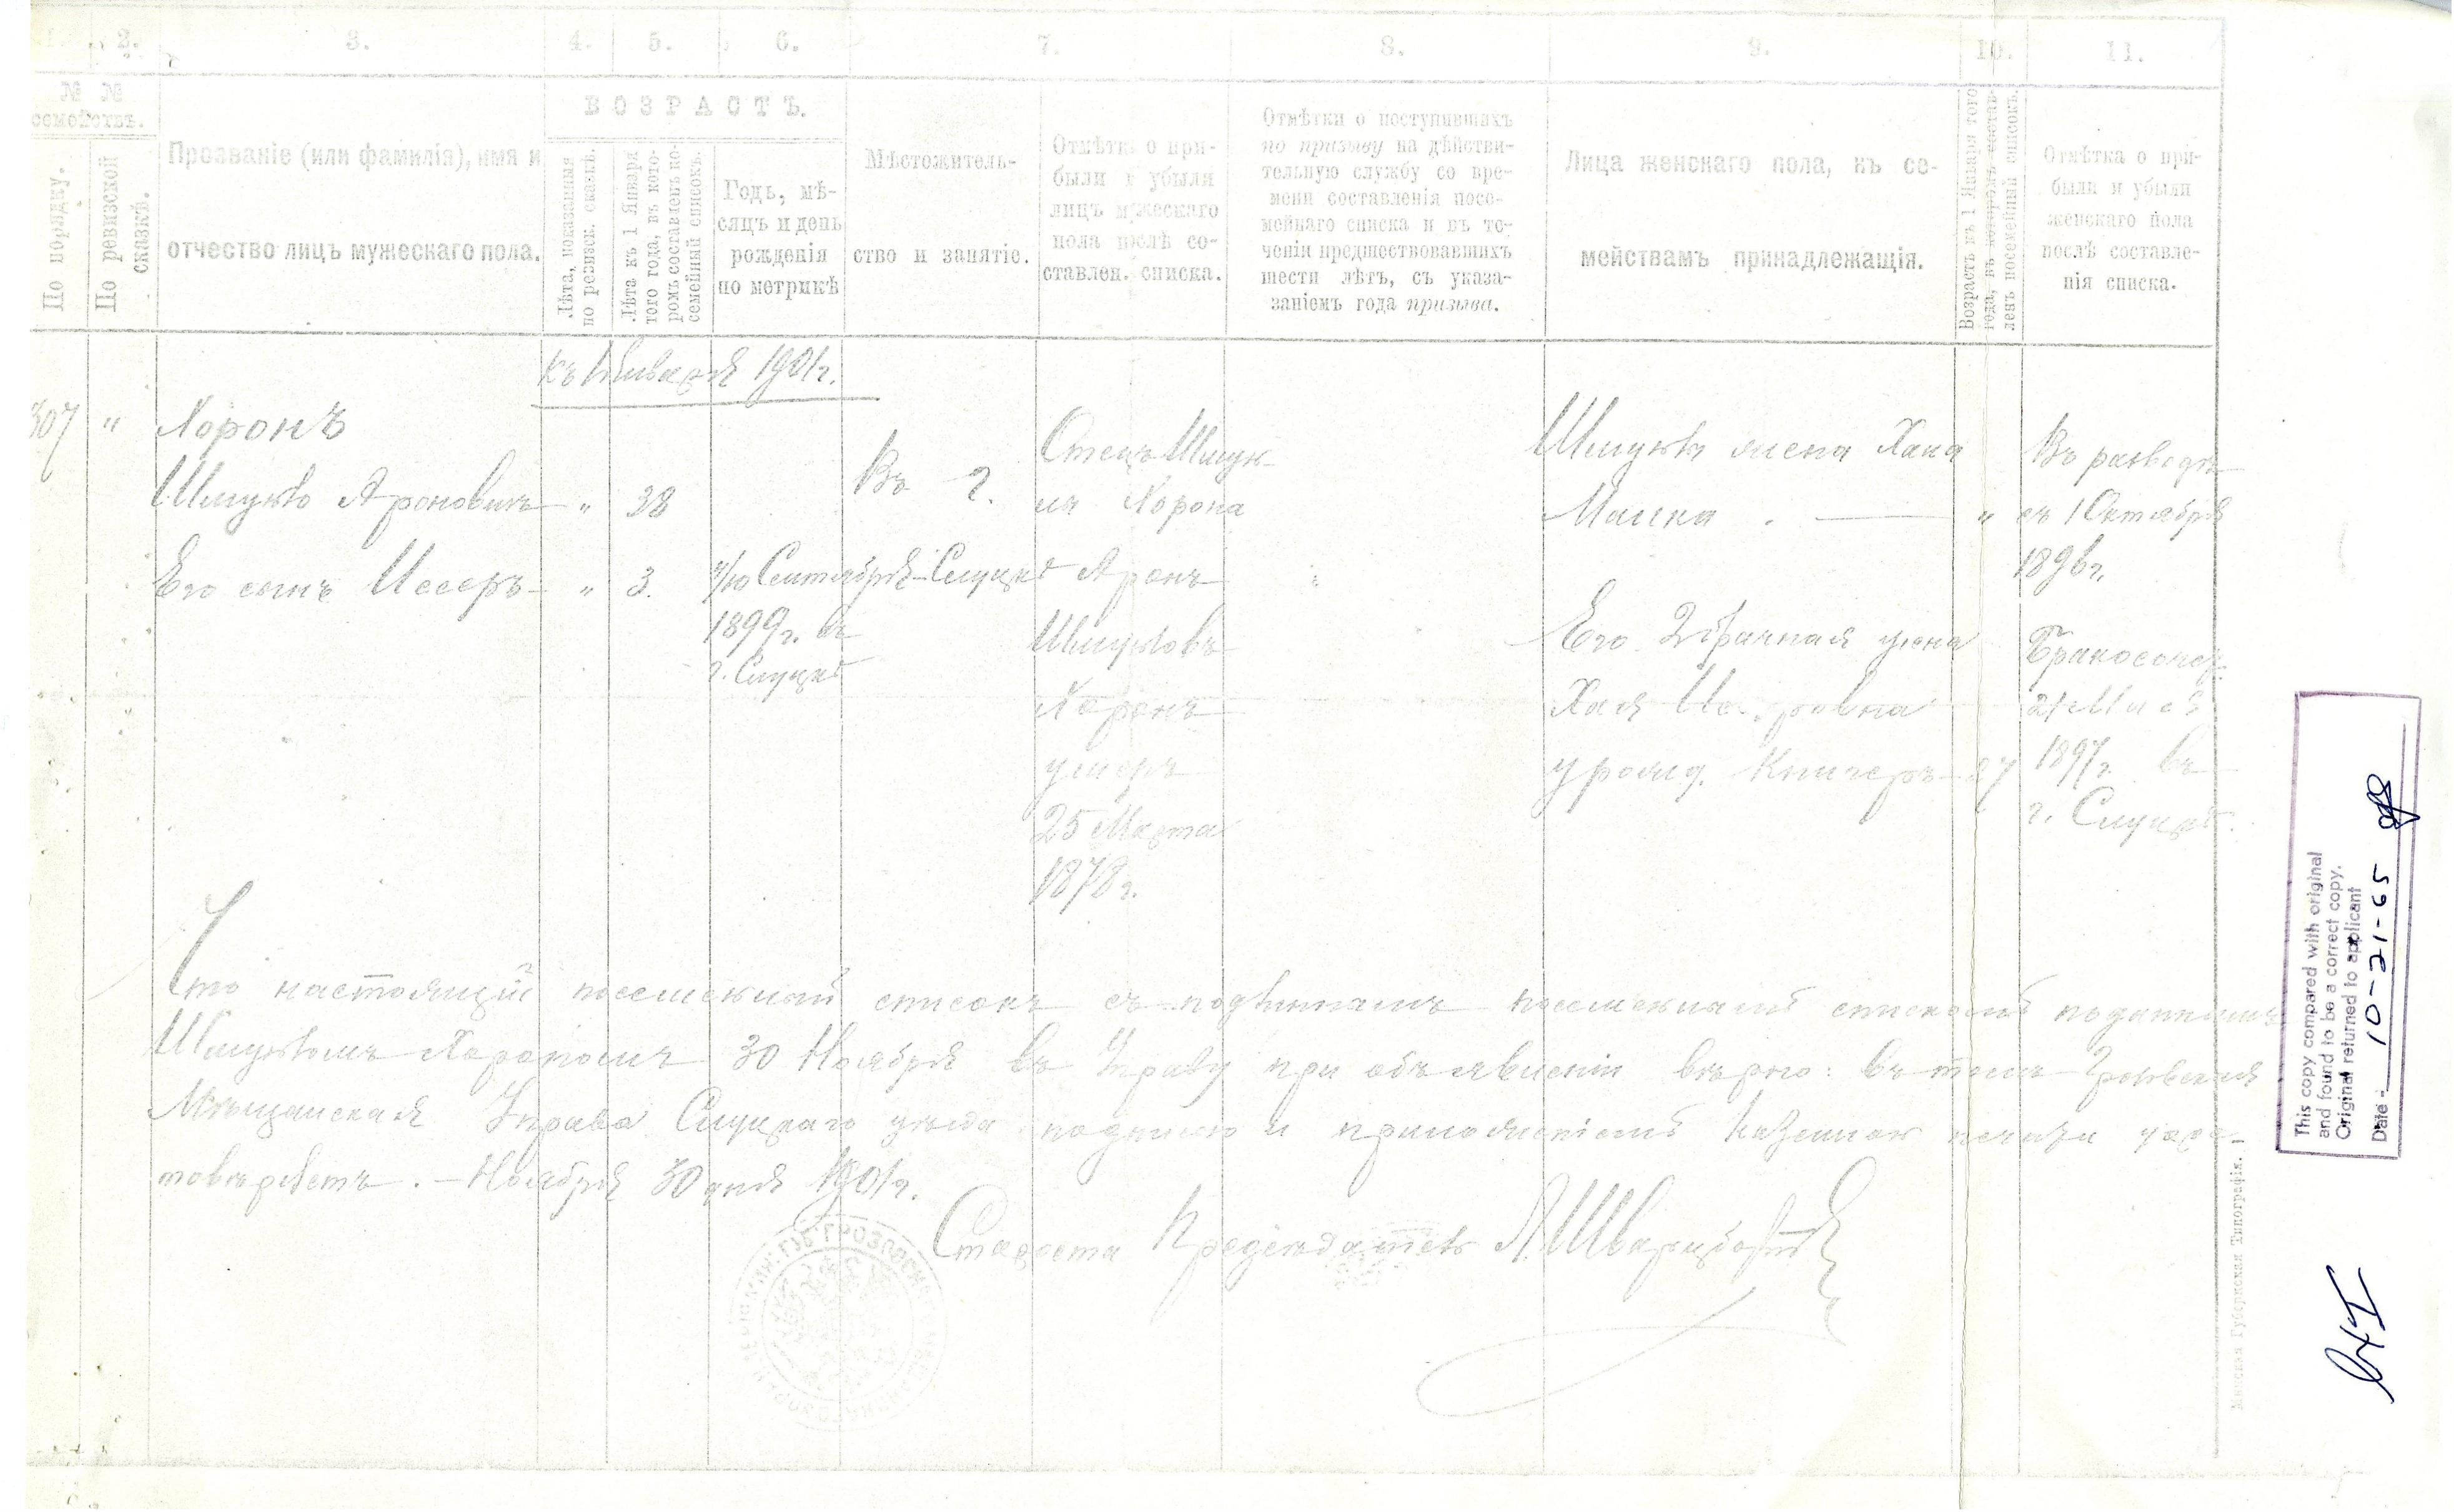 1. 2. 3. 4. 5. 6. 7. 8. 9. 10. 11.
№ №
семействъ.
По порядку.
По ревизской
сказкѣ.
Прозваніе (или фамилія), имя и
отчество лицъ мужескаго пола.
ВОЗРАСТЪ.
Лѣта, показанныя
по ревизск. сказкѣ.
Лѣта къ 1 Января
того года, въ кото-
ромъ составленъ по-
семейный списокъ.
Годъ, мѣ-
сяцъ и день
рожденія
по метрикѣ
Мѣстожитель-
ство и занятіе.
Отмѣтка о при-
были и убыли
лицъ мужескаго
пола послѣ со-
ставлен. списка.
Отмѣтки о поступившихъ
по призыву на дѣйстви-
тельную службу со вре-
мени составленія посе-
мейнаго списка и въ те-
ченіи предшествовавшихъ
шести лѣтъ, съ указа-
ніемъ года призыва.
Лица женскаго пола, къ се-
мействамъ принадлежащія.
Возрастъ къ 1 Января того
года, въ которомъ состав-
ленъ посемейный списокъ.
Отмѣтка о при-
были и убыли
женскаго пола
послѣ составле-
нія списка.
къ 1 Января 1901 г.
307 "
Хоронъ
Шмуйло Ароновичъ " 38
Его сынъ Иссеръ " 3.
Сентября
1899 г. въ
г. Слуцкѣ
Въ г.
Слуцкѣ
Отецъ Шмуй-
ла Хорона
Аронъ
Шмуйловъ
Хоронъ
умеръ
25 Марта
1878 г.
Шмуйлы жена Хана
"
Въ разводѣ
съ 1 Октября
1896 г.
Его 2 брачная жена
Хая
урожд. 27
Бракосочет.
21 Мая
1897 г. въ
г. Слуцкѣ.
Что настоящій посемейный списокъ съ подлиннымъ посемейнымъ спискомъ поданнымъ
Шмуйломъ Хорономъ 30 Ноября въ Управу при объявленіи вѣрно: въ томъ Грозовская
Мѣщанская Управа Слуцкаго уѣзда подписью и приложеніемъ казенной печати удос-
товѣряетъ. — Ноября 30 дня 1901 г.
Староста Предсѣдатель
This copy compared with original
and found to be a correct copy.
Original returned to applicant
Date - 10-21-65
Минская Губернская Типографія.